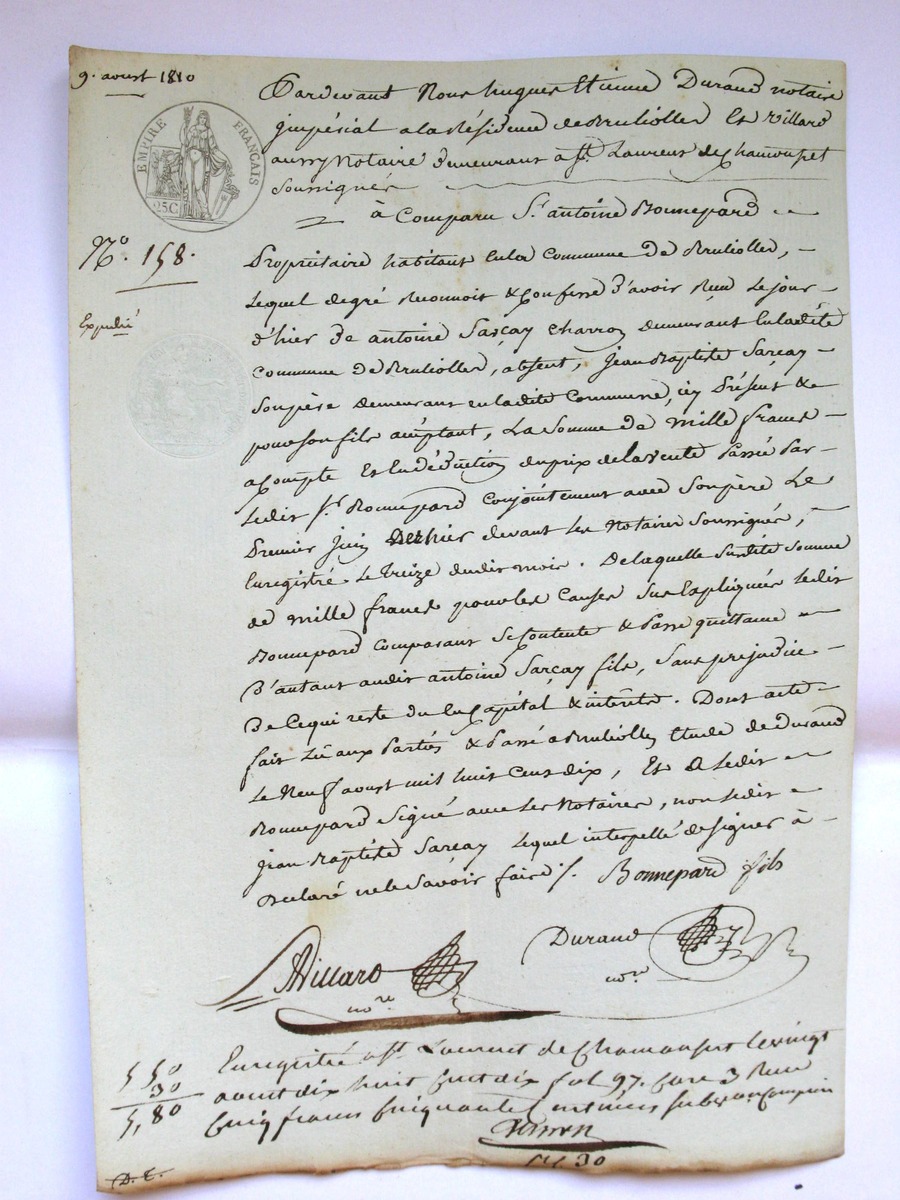 9. aoust 1810
EMPIRE FRANÇAIS
25C
N.º 158.
Expedié
Pardevant Nous hugues Etienne Durand notaire
jmpérial a la Résidence de Brulioller Et Villard
aussy Notaire demeurant a St. Laurent de Chamousset
Soussignés
à Comparu S.r antoine Bonnepard
Propriétaire habitant En la Commune de Brulioller,
Lequel de gré Reconnoit & Confesse d'avoir Reçu Le jour
d'hier de antoine Sarçay charron demeurant En ladite
Commune de Brulioller, absent, jean Baptiste Sarçay
Son père demeurant en ladite Commune, icy Présent &
pour son fils acceptant, La Somme de mille francs
a Compte Et En déduction du prix de la vente Passée Par
Ledit S.r Bonnepard Conjointement avec Son père Le
Premier Juin dernier devant Les Notaires Soussignés,
Enregistré Le treize dudit mois. De laquelle Susdite Somme
de mille francs pour les Causes Sus Expliquées Ledit
Bonnepard Comparant Se Contente & Passe quittance
D'autant audit antoine Sarçay fils, Sans préjudice
De Ce qui reste du En Capital & intérêts. Dont acte
fait Lu aux Parties & Passé a Brulioller Etude de Durand
Le Neuf aoust mil huit Cent dix, Et A Ledit
Bonnepard Signé avec Les Notaires, non Ledit
jean Baptiste Sarçay Lequel interpellé de signer à
Declaré ne le Savoir faire /. Bonnepard fils
Villard
no.re
Durand
no.re
5 50
30
5,80
Enregistré a St. Laurent de Chamousset le vingt
aoust dix huit Cent dix fol 97. Case 3 Reçu
Cinq francs Cinquante Centimes
D. E.